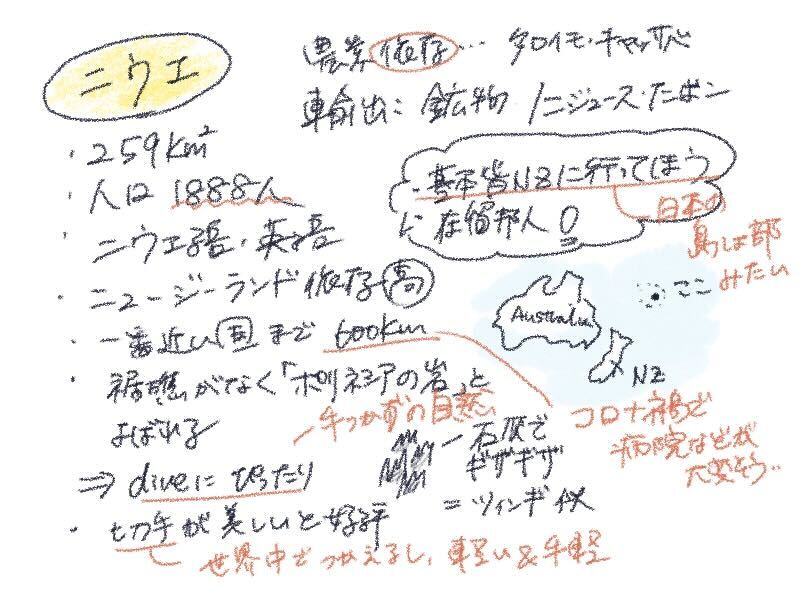 ニウエ
農業依存… タロイモ・キャッサバ
輸出: 鉱物 ノニジュース・たばこ
・259km²
・人口 1888人
・ニウエ語・英語
・ニュージーランド依存高
・一番近い国まで 600km
・裾礁がなく「ポリネシアの岩」と
よばれる
手つかずの自然
⇒ diveにぴったり
・切手が美しいと好評
世界中でつかえるし、軽い&手軽
・基本皆NZに行ってしまう
在留邦人 0
日本の
島しょ部
みたい
ここ
Australia
NZ
コロナ禍で
病院などが
大変そう…
石灰で
ギザギザ
=ツィンギ似